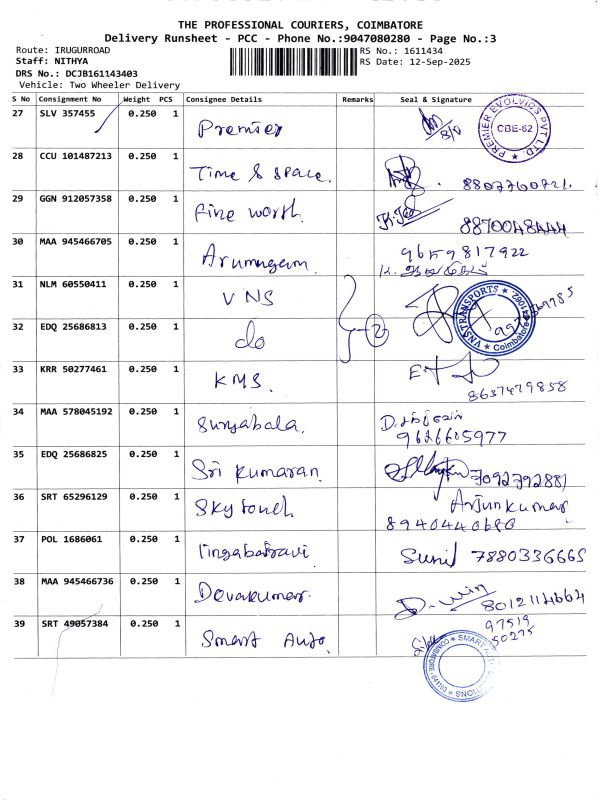 THE PROFESSIONAL COURIERS, COIMBATORE
Delivery Runsheet - PCC - Phone No.:9047080280 - Page No.:3
Route: IRUGURROAD RS No.: 1611434
Staff: NITHYA RS Date: 12-Sep-2025
DRS No.: DCJB161143403
Vehicle: Two Wheeler Delivery
S No Consignment No Weight PCS Consignee Details Remarks Seal & Signature
27 SLV 357455 0.250 1 Premier PREMIER EVOLVICS PVT LTD. CBE-62
28 CCU 101487213 0.250 1 Time & space.
29 GGN 912057358 0.250 1 Fine worth 8870048444
30 MAA 945466705 0.250 1 Arumugam 9659817922
31 NLM 60550411 0.250 1 VNS VNS TRANSPORTS Coimbatore
32 EDQ 25686813 0.250 1 do 2
33 KRR 50277461 0.250 1 KMS. 8637479858
34 MAA 578045192 0.250 1 Suryabala. 9626605977
35 EDQ 25686825 0.250 1 Sri Kumaran 7092792881
36 SRT 65296129 0.250 1 Sky touch Arjunkumar
37 POL 1686061 0.250 1 Sunil 7880336665
38 MAA 945466736 0.250 1 Devakumar. 8012114664
39 SRT 49057384 0.250 1 Smart Auto. 97519
50275